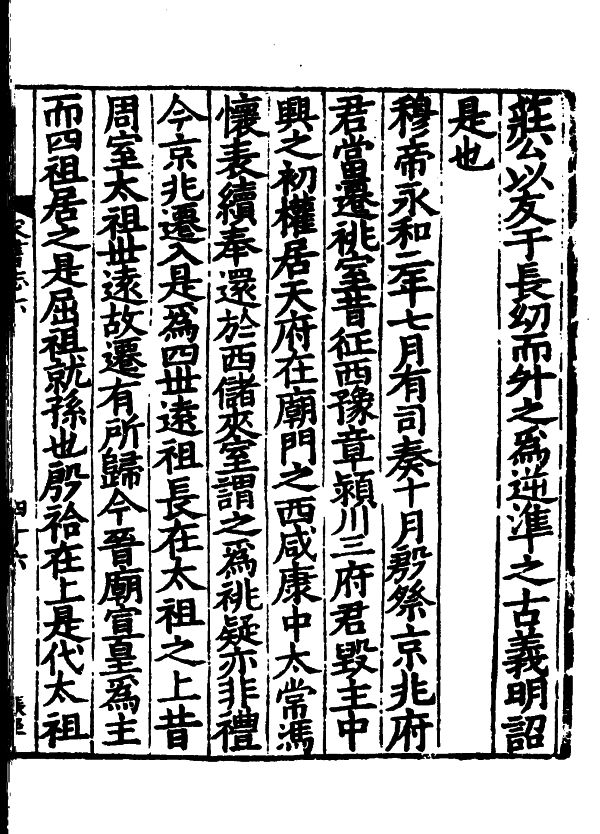 莊公以友于長幼而升之爲逆準之古義明詔
是也
穆帝永和二年七月有司奏十月殷祭京兆府
君當遷祧室昔征西豫章潁川三府君毀主中
興之初權居天府在廟門之西咸康中太常馮
懷表續奉還於西儲夾室謂之爲祧疑亦非禮
今京兆遷入是爲四世遠祖長在太祖之上昔
周室太祖世遠故遷有所歸今晉廟宣皇爲主
而四祖居之是屈祖就孫也殷祫在上是代太祖
宋書志六
四十六